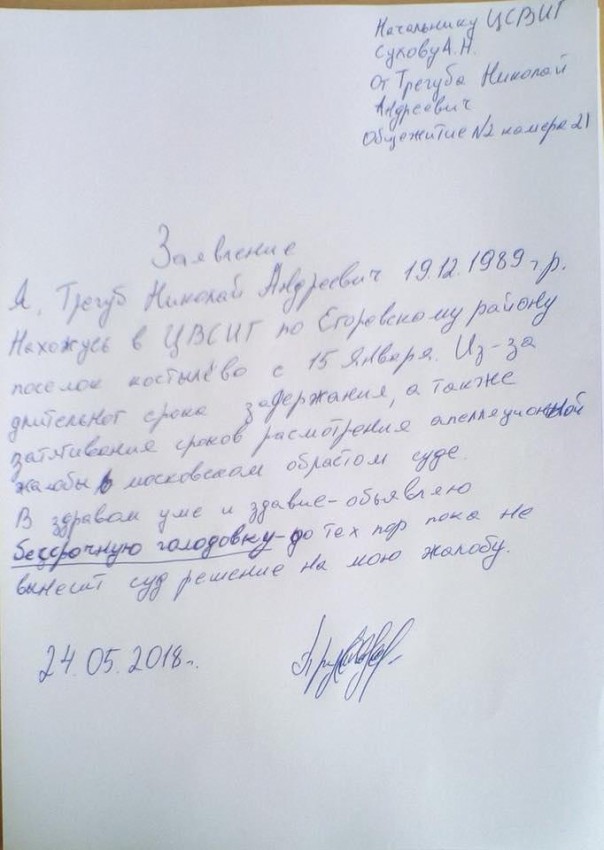 Начальнику ЦСВИГ
Сухову А.Н.
От Трегуба Николай
Андреевич
Общежитие №2 камера 21
Заявление
Я, Трегуб Николай Андреевич 19.12.1989 г р.
Нахожусь в ЦВСИГ по Егоровскому району
поселок костылёво с 15 Января. Из-за
длительног срока задержания, а также
затягивания сроков расмотрения апелляционной
жалобы в московском обрастом суде.
В здравом уме и здавие-обьявляю
бессрочную голодовку-до тех пор пока не
вынесит суд решение на мою жалобу.
24.05.2018г.